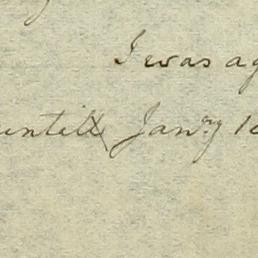 I was ag
untill Jan'ry 18